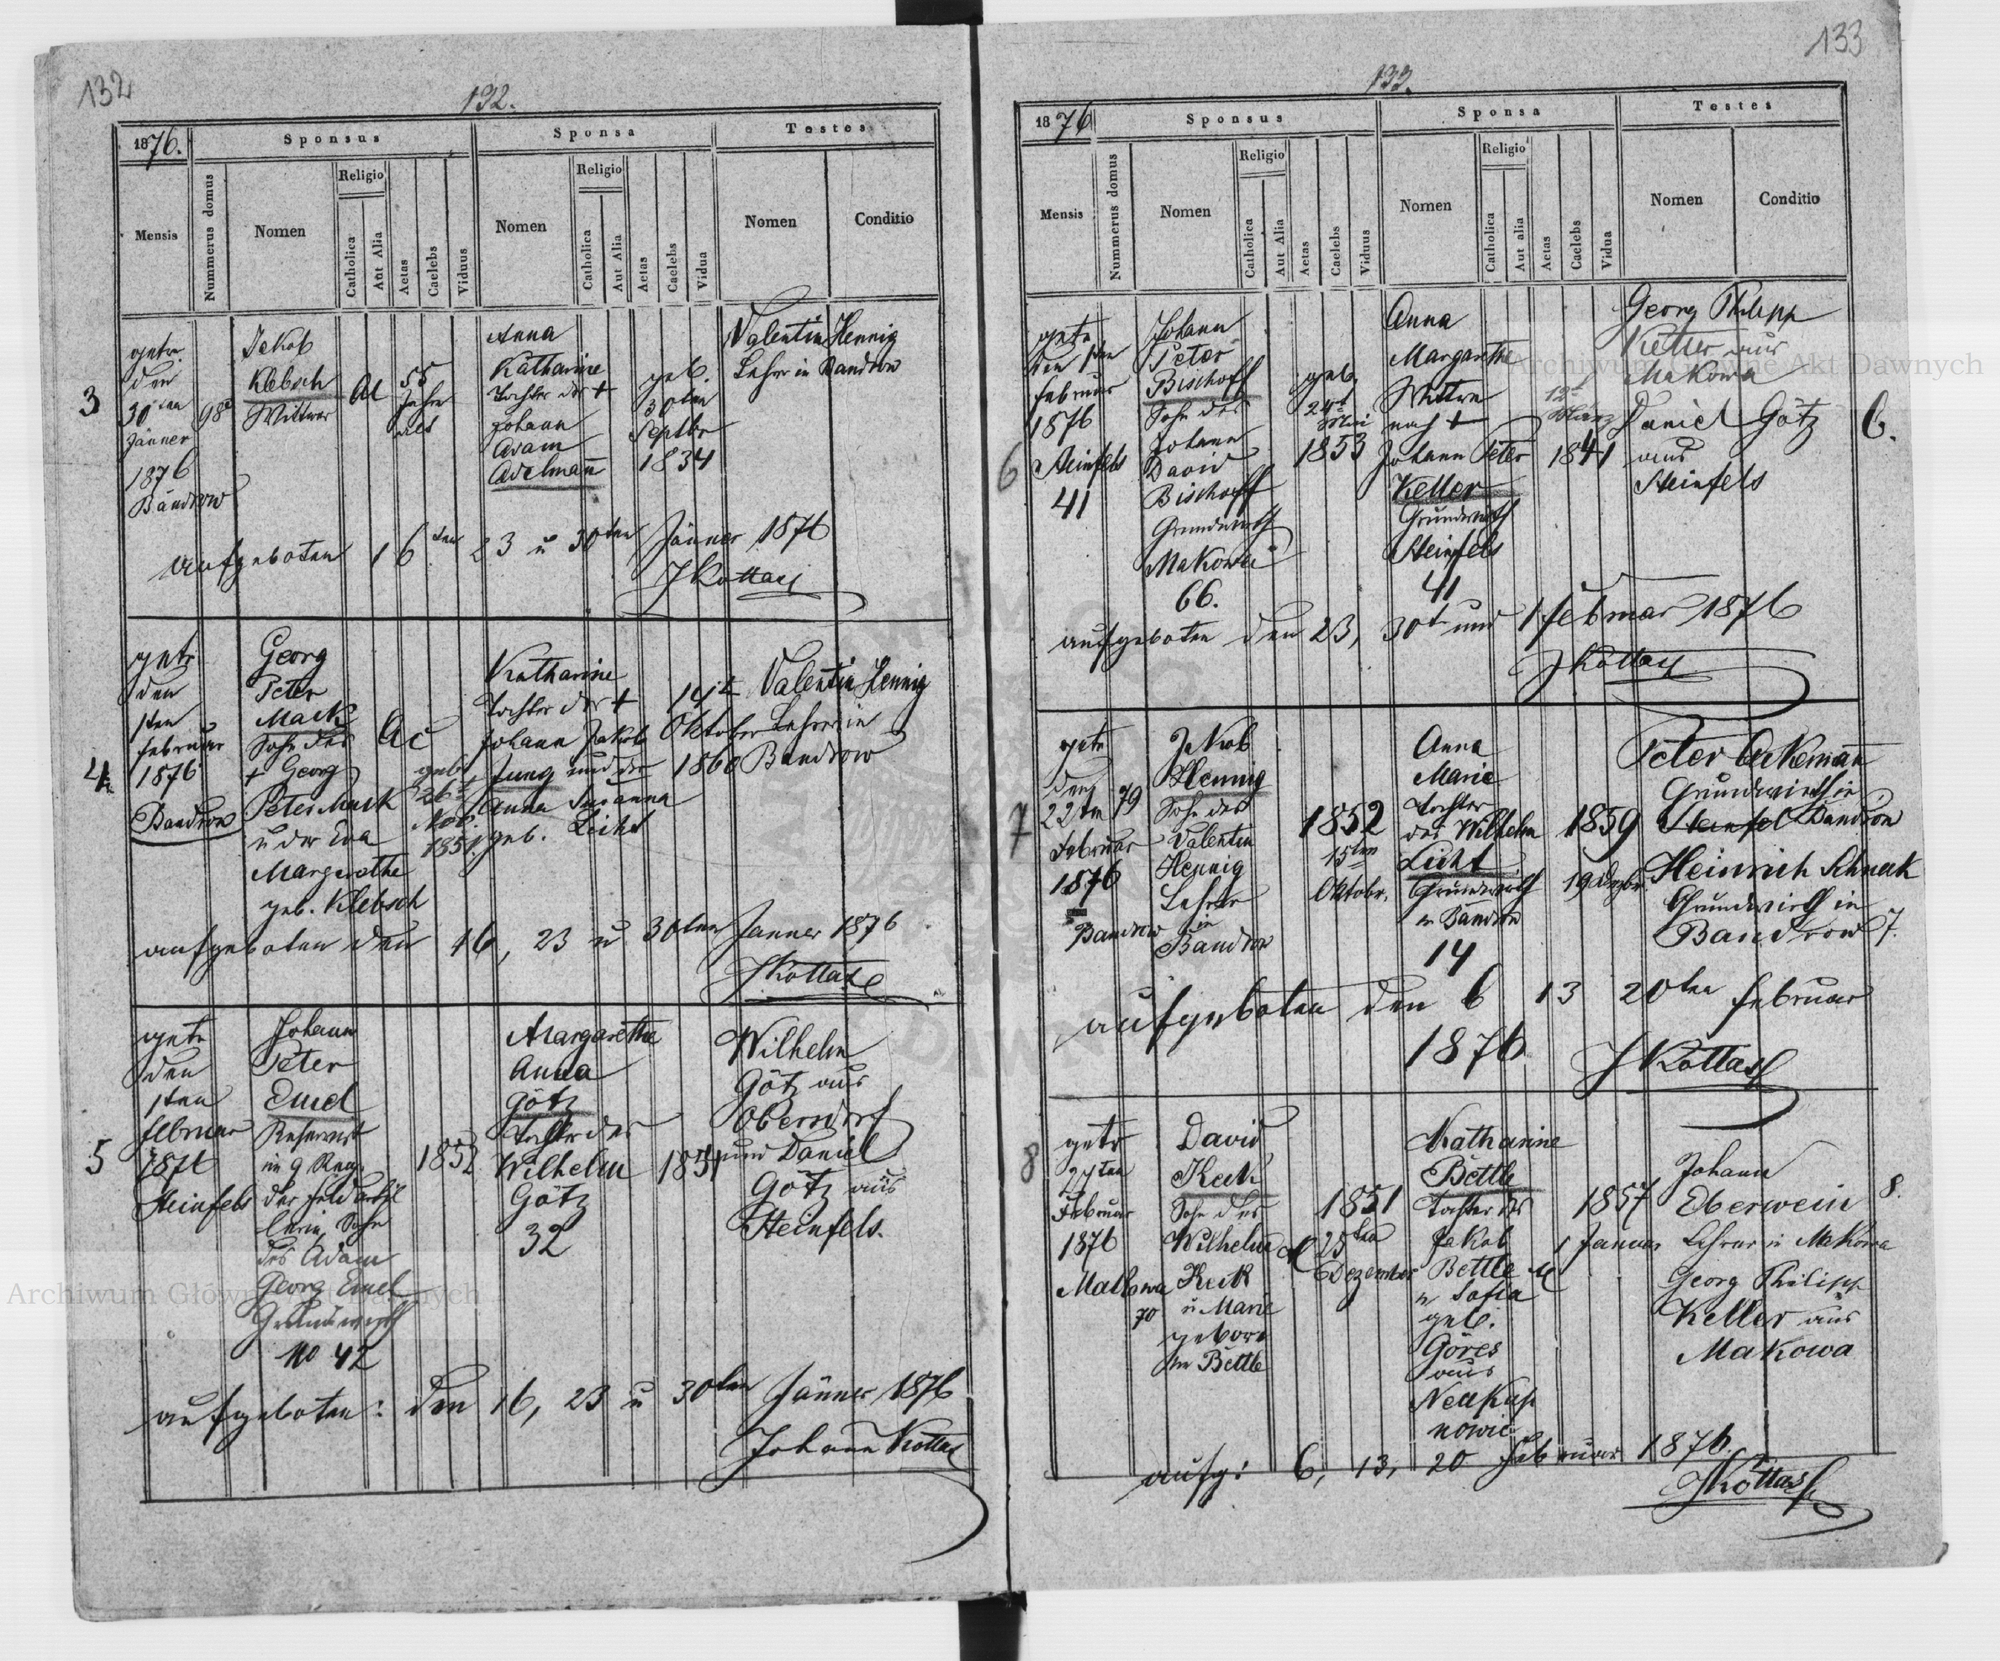 132
132.
1876.
Sponsus
Sponsa
Testes
Mensis
Nummerus domus
Nomen
Religio
Catholica
Aut Alia
Aetas
Caelebs
Viduus
Nomen
Religio
Catholica
Aut Alia
Aetas
Caelebs
Vidua
Nomen
Conditio
3
getr.
den
30ten
Jänner
1876
Bandrow
98
Jakob
Klebsch
Wittwer
AC
55
Jahre
alt
Anna
Katharine
Tochter des +
Johann
Adam
Adelmann
geb.
30ten
Septbr
1834
Valentin Hennig
Lehrer in Bandrow
aufgeboten 16ten 23 u 30ten Jänner 1876
JKottas
4.
getr
den
1ten
Februar
1876
Bandrow
Georg
Peter
Mack
Sohn des
+ Georg
Peter Mack
u der Eva
Margarethe
geb. Klebsch
AC
geb.
26t
Nov
1851
Katharine
Tochter des +
Johann Jakob
Jung und der
Anna Susanna
geb. Licht
14t
Oktober
1860
Valentin Hennig
Lehrer in
Bandrow
aufgeboten den 16, 23 u 30ten Janner 1876
JKottas
5
getr
den
1ten
Februar
1876
Steinfels
Johann
Peter
Emel
Reservist
im 9 Reg.
der Feldartil
lerie, Sohn
des Adam
Georg Emel
Grundwirth
No 42
1852
Margarethe
Anna
Götz
Tochter des
Wilhelm
Götz
32
Wilhelm
Götz aus
Oberndorf
und Daniel
Götz aus
Steinfels.
aufgeboten: den 16, 23 u 30ten Jänner 1876
Johann Kottas
133
133.
1876
Sponsus
Sponsa
Testes
Mensis
Nummerus domus
Nomen
Religio
Catholica
Aut Alia
Aetas
Caelebs
Viduus
Nomen
Religio
Catholica
Aut alia
Aetas
Caelebs
Vidua
Nomen
Conditio
6
getr
den 1ten
Februar
1876
Steinfels
41
Johann
Peter
Bischoff
Sohn des
Johann
David
Bischoff
Grundwirth
Makowa
66.
geb.
24t
Mai
1853
Anna
Margarethe
Wittwe
nach +
Johann Peter
Keller
Grundwirth
Steinfels
41
12t
März
1841
Georg Philipp
Keller aus
Makowa
Daniel Götz
aus
Steinfels
6.
aufgeboten den 23, 30t und 1 Februar 1876
JKottas
7
getr
den
22ten
Februar
1876
Bandrow
79
Jakob
Hennig
Sohn des
Valentin
Hennig
Lehrer
in
Bandrow
1852
15ten
Oktobr.
Anna
Marie
Tochter
des Wilhelm
Licht
Grundwirth
in Bandrow
14
1859
19 Dezbr
Peter Ackermann
Grundwirth in
Steinfel Bandrow
Heinrich Schnak
Grundwirth in
Bandrow
7.
aufgeboten den 6 13 20ten Februar
1876
JKottas
8
getr
27ten
Februar
1876
Makowa
70
David
Keck
Sohn des
Wilhelm
Keck
u Marie
gebore
ne Bettle
AC
1851
25ten
Dezember
Katharine
Bettle
Tochter des
Jakob
Bettle
u Sofia
geb.
Göres
aus
NeuKup
nowic
AC
1857
1 Januar
Johann
Eberwein
Lehrer in Makowa
Georg Philipp
Keller aus
Makowa
8.
aufg: 6, 13, 20 Februar 1876.
JKottas
Archiwum Główne Akt Dawnych
Archiwum Główne Akt Dawnych